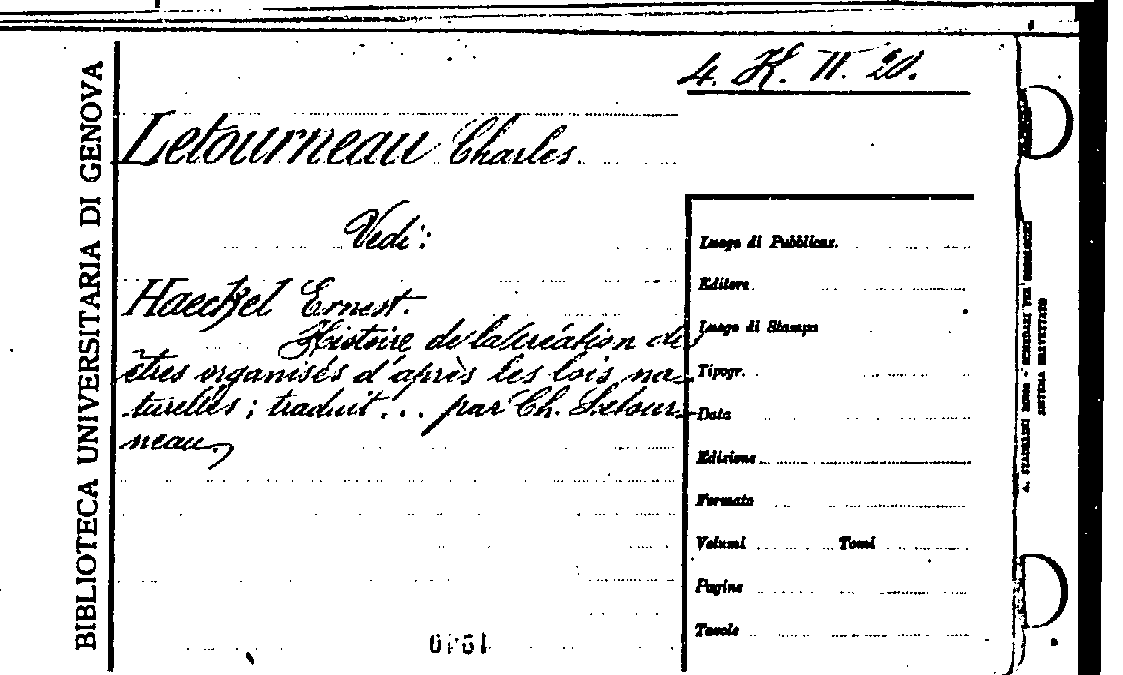 BIBLIOTECA UNIVERSITARIA DI GENOVA
4. K. II. 20.
Letourneau Charles.
Vedi:
Haeckel Ernest.
Histoire de la création des
êtres organisés d'après les lois na-
turelles; traduit... par Ch. Letour-
neau.
Luogo di Pubblicaz.
Editore
Luogo di Stampa
Tipogr.
Data
Edizione
Formato
Volumi Tomi
Pagine
Tavole
SISTEMA BREVETTATO